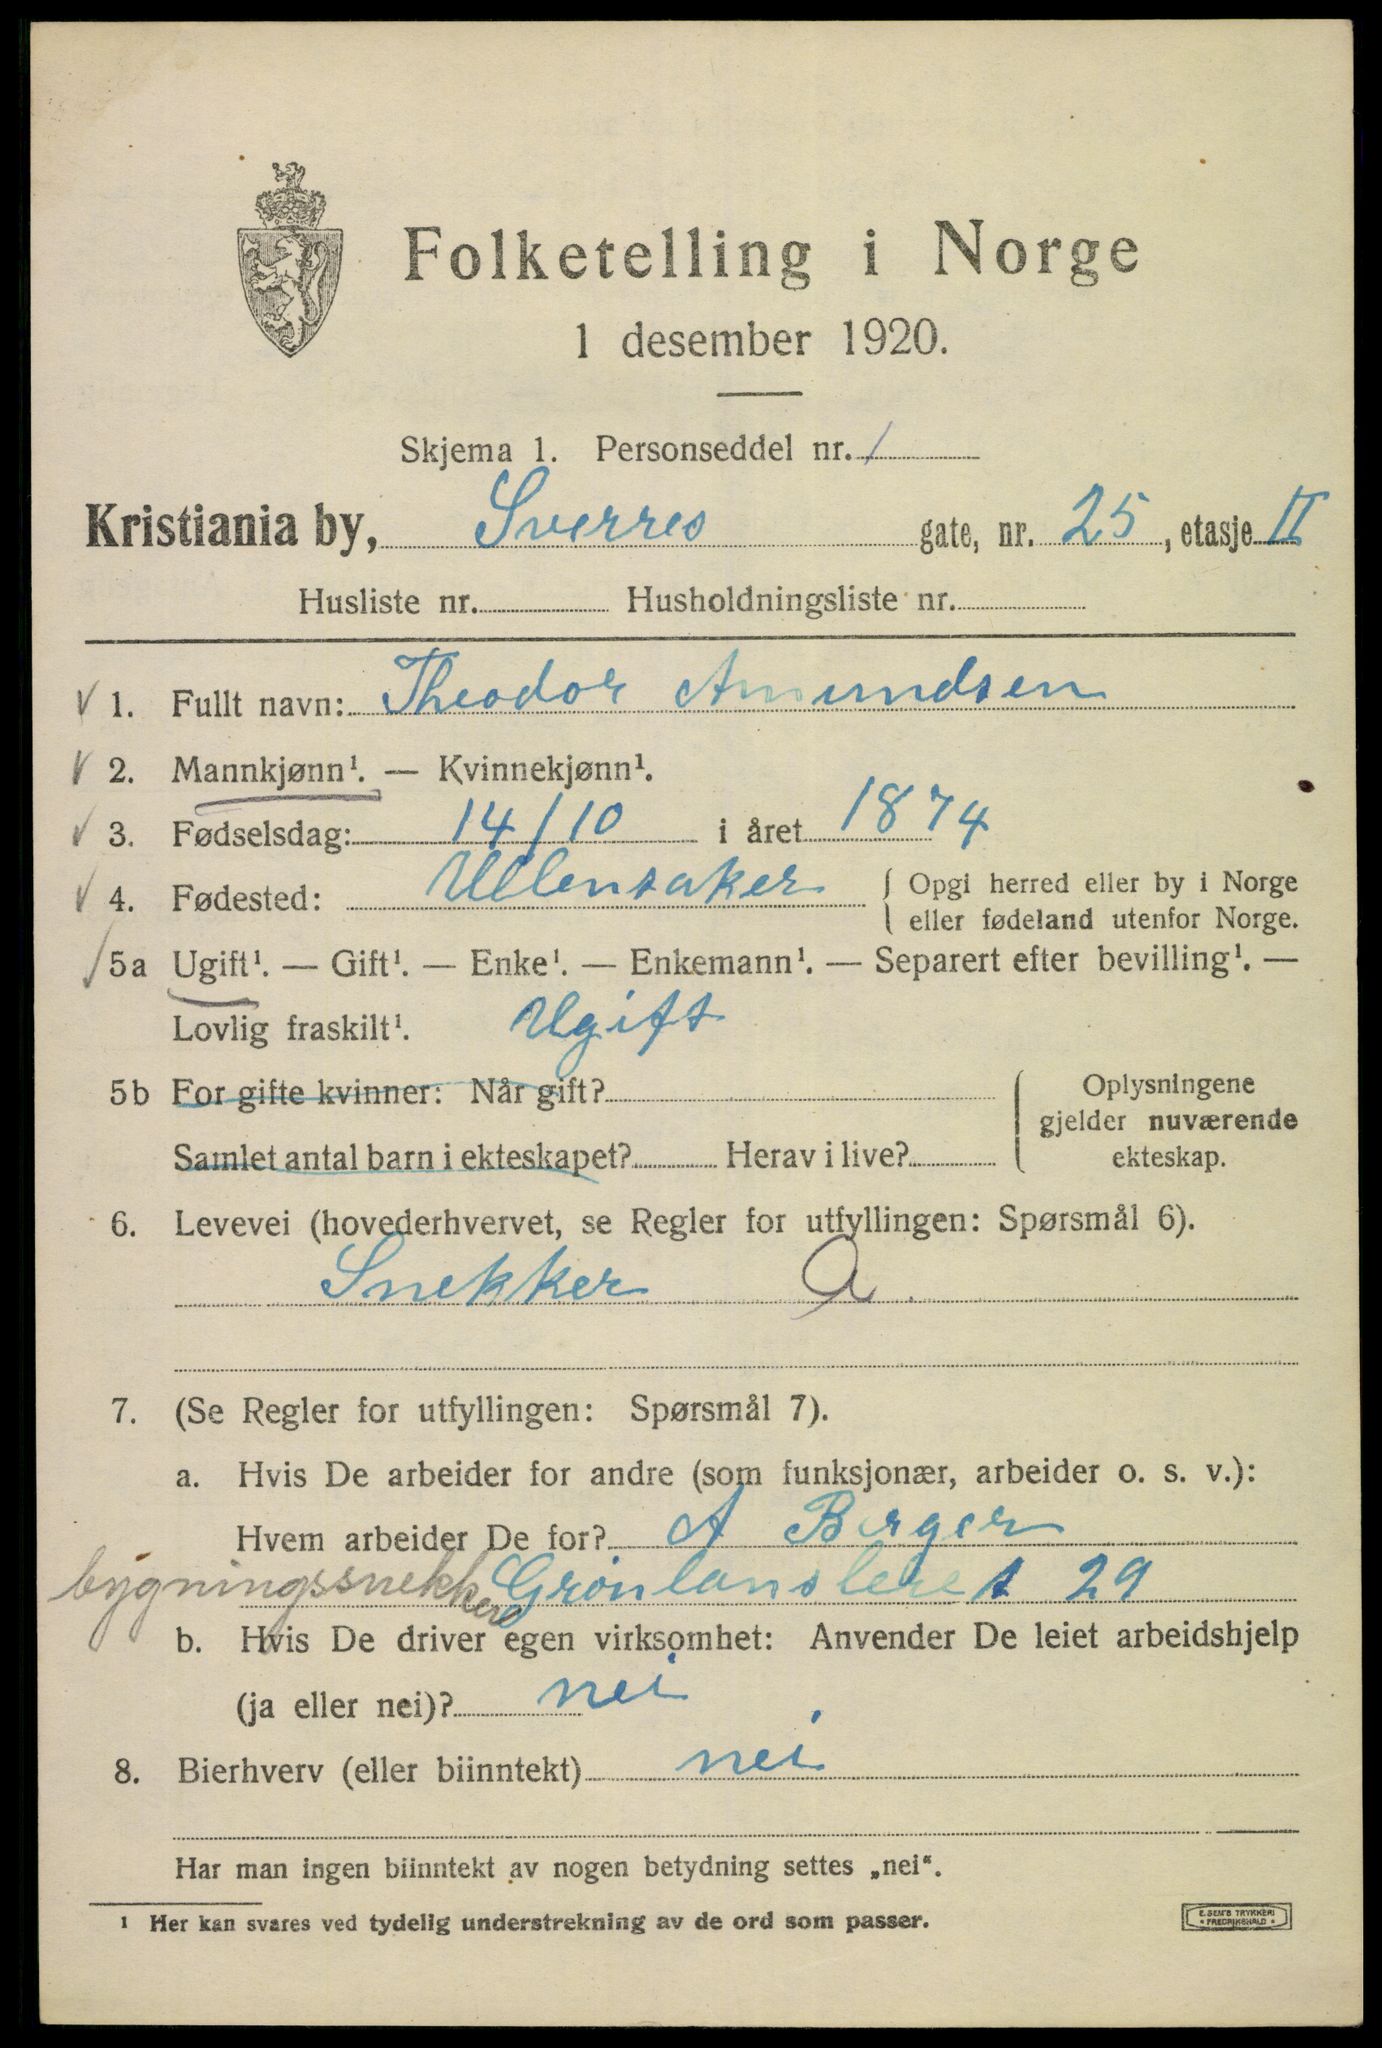 Folketelling i Norge
1 desember 1920.
Skjema 1. Personseddel nr. 1
Kristiania by, Sverres gate, nr. 25, etasje II
Husliste nr. Husholdningsliste nr.
√ 1. Fullt navn: Theodor Amundsen
√ 2. Mannkjønn¹. — Kvinnekjønn¹.
√ 3. Fødselsdag: 14/10 i året 1874
√ 4. Fødested: Ullensaker { Opgi herred eller by i Norge
eller fødeland utenfor Norge.
√ 5a Ugift¹. — Gift¹. — Enke¹. — Enkemann¹. — Separert efter bevilling¹. —
Lovlig fraskilt¹. Ugift
5b For gifte kvinner: Når gift? { Oplysningene
gjelder nuværende
Samlet antal barn i ekteskapet? Herav i live? ekteskap.
6. Levevei (hovederhvervet, se Regler for utfyllingen: Spørsmål 6).
Snekker a.
7. (Se Regler for utfyllingen: Spørsmål 7).
a. Hvis De arbeider for andre (som funksjonær, arbeider o. s. v.):
Hvem arbeider De for? A Berger
bygningssnekker Grönlansleret 29
b. Hvis De driver egen virksomhet: Anvender De leiet arbeidshjelp
(ja eller nei)? nei
8. Bierhverv (eller biinntekt) nei
Har man ingen biinntekt av nogen betydning settes „nei“.
¹ Her kan svares ved tydelig understrekning av de ord som passer.
E. SEM'S TRYKKERI
* FREDRIKSHALD *